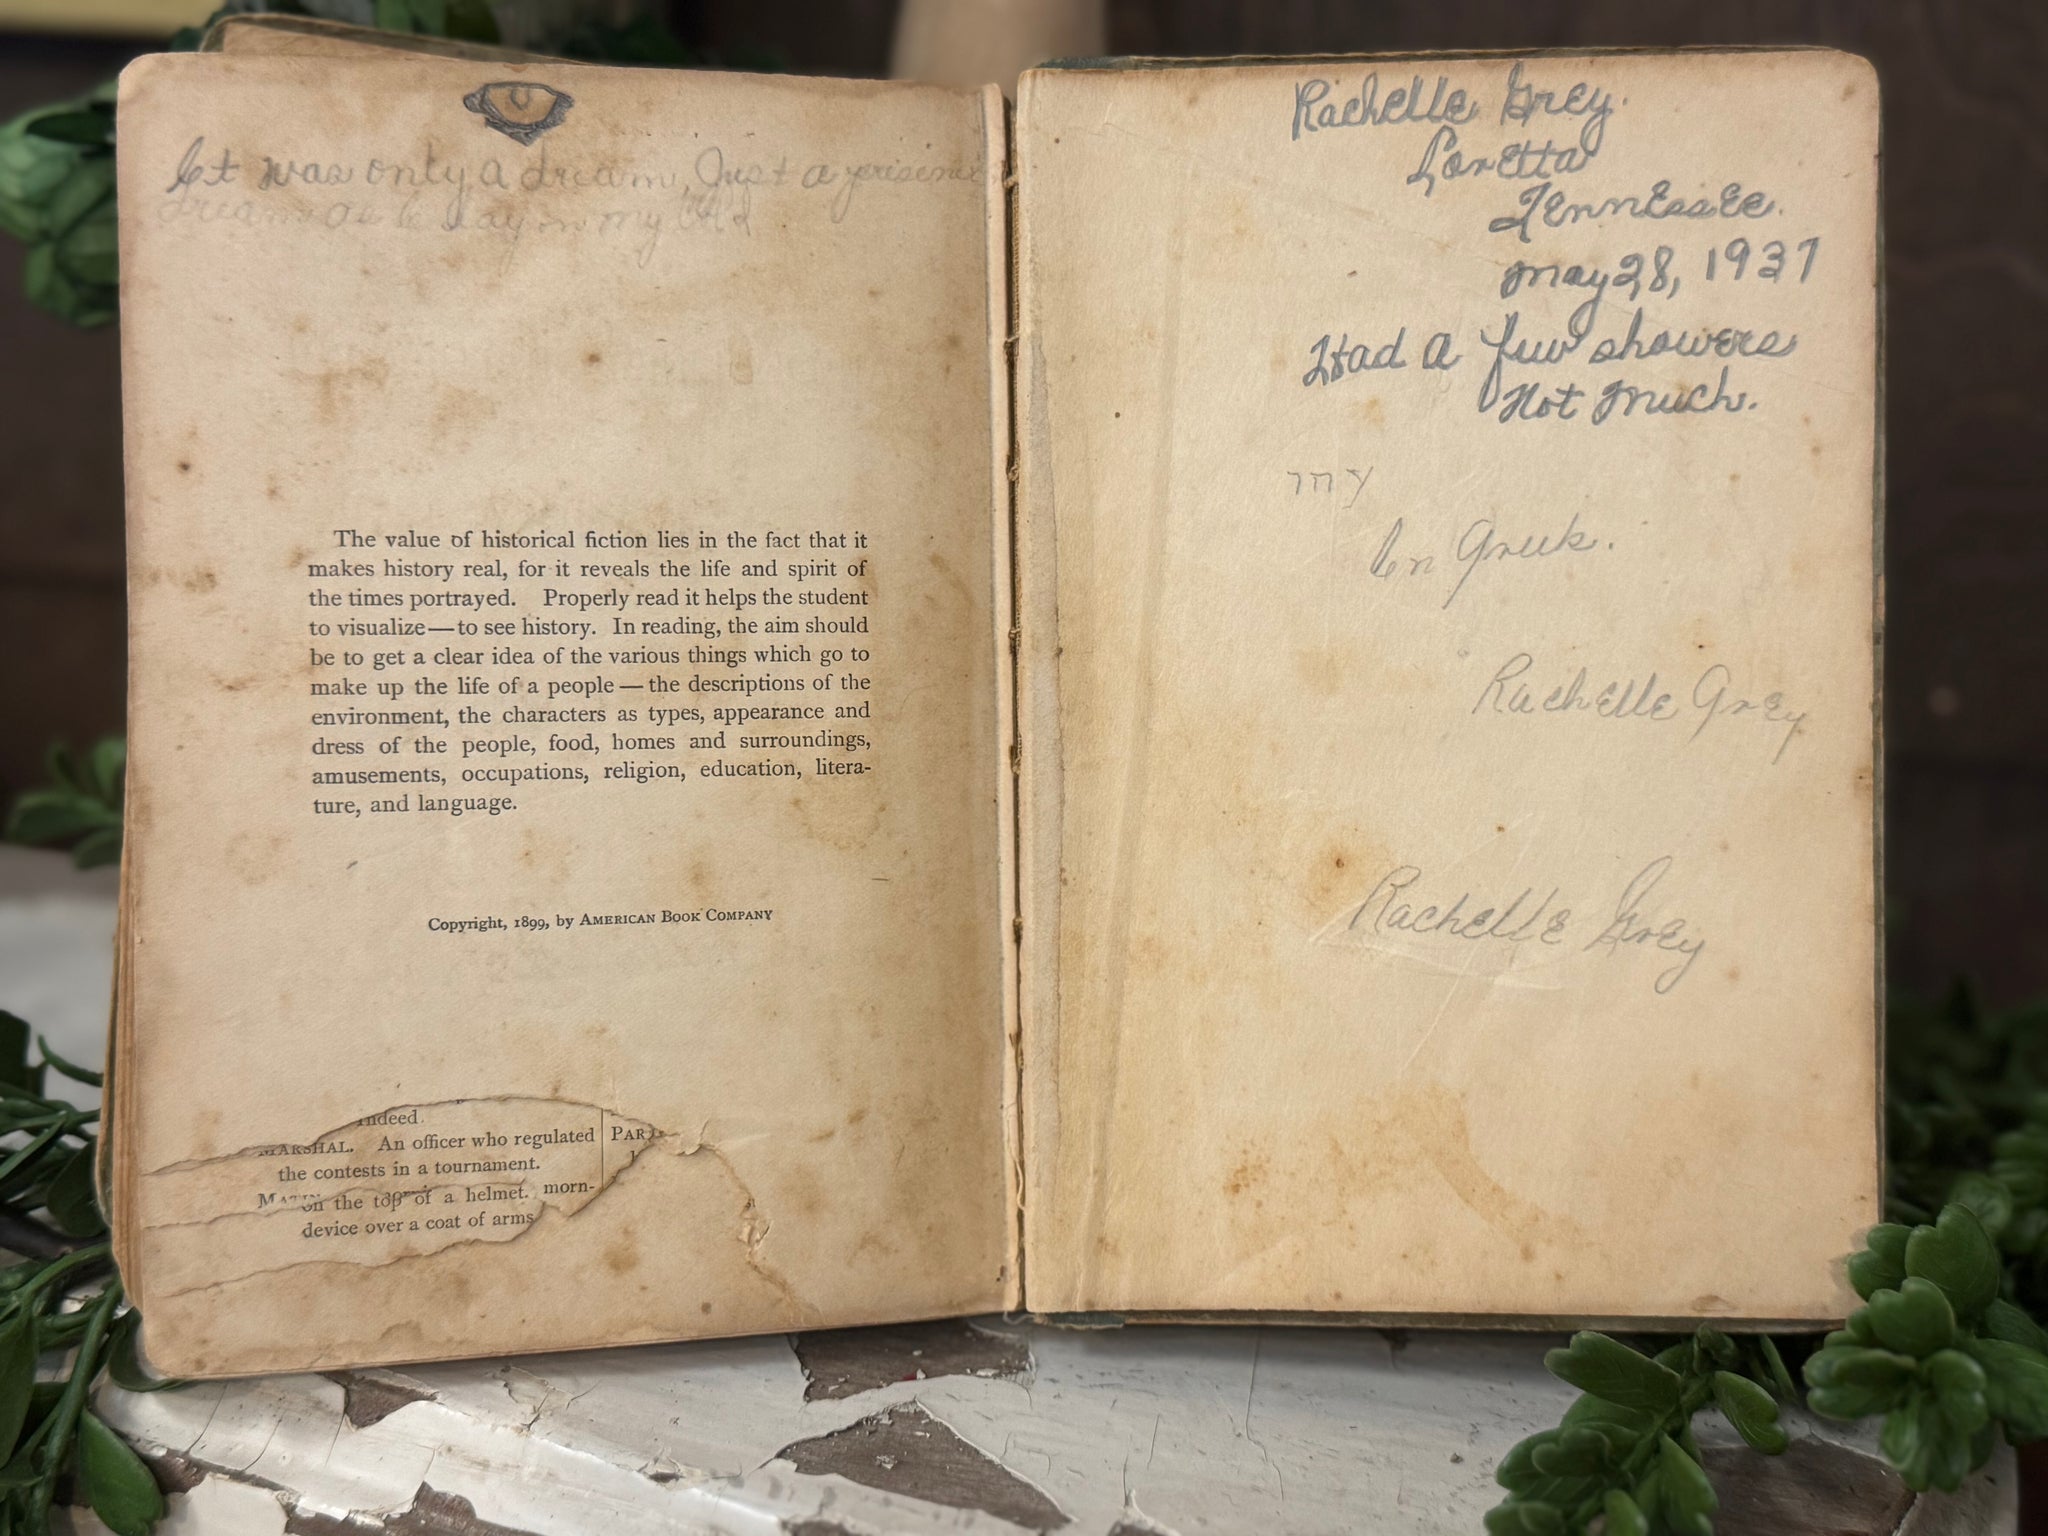 It was only a dream, Just a prisoner
dream as I lay in my
The value of historical fiction lies in the fact that it
makes history real, for it reveals the life and spirit of
the times portrayed. Properly read it helps the student
to visualize—to see history. In reading, the aim should
be to get a clear idea of the various things which go to
make up the life of a people — the descriptions of the
environment, the characters as types, appearance and
dress of the people, food, homes and surroundings,
amusements, occupations, religion, education, litera-
ture, and language.
Copyright, 1899, by AMERICAN BOOK COMPANY
indeed.
MARSHAL. An officer who regulated
the contests in a tournament.
on the top of a helmet. morn-
device over a coat of arms
Rachelle Grey.
Loretta
Tennessee.
May 28, 1937
Had a few showers
Not Much.
my
In Greek.
Rachelle Grey
Rachelle Grey